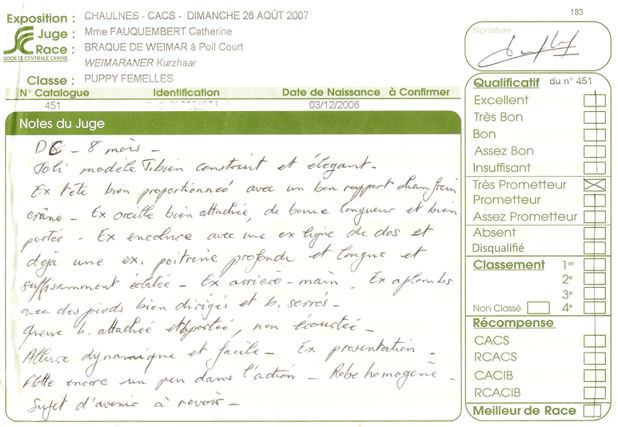 Exposition : CHAULNES - CACS - DIMANCHE 26 AOÛT 2007
Juge : Mme FAUQUEMBERT Catherine
Race : BRAQUE DE WEIMAR à Poil Court
WEIMARANER Kurzhaar
SOCIETE CENTRALE CANINE
Classe : PUPPY FEMELLES
N° Catalogue Identification Date de Naissance à Confirmer
451 03/12/2006
Notes du Juge
8 mois -
Joli modèle T. bien construit et élégant -
Ex tête bien proportionnée avec un bon rapport chanfrein
crâne - Ex oreille bien attachée, de bonne longueur et bien
portée - Ex encolure avec une ex ligne de dos et
déjà une ex. poitrine profonde et longue et
suffisamment éclatée - Ex arrière-main. Ex aplombs
avec des pieds bien dirigés et b. serrés -
queue b. attachée et portée, non écourtée -
Allure dynamique et facile - Ex presentation -
flotte encore un peu dans l'action - Robe homogène -
Sujet d'avenir à revoir -
183
Signature :
Qualificatif du n° 451
Excellent
Très Bon
Bon
Assez Bon
Insuffisant
Très Prometteur
Prometteur
Assez Prometteur
Absent
Disqualifié
Classement 1er
2e
3e
Non Classé 4e
Récompense
CACS
RCACS
CACIB
RCACIB
Meilleur de Race